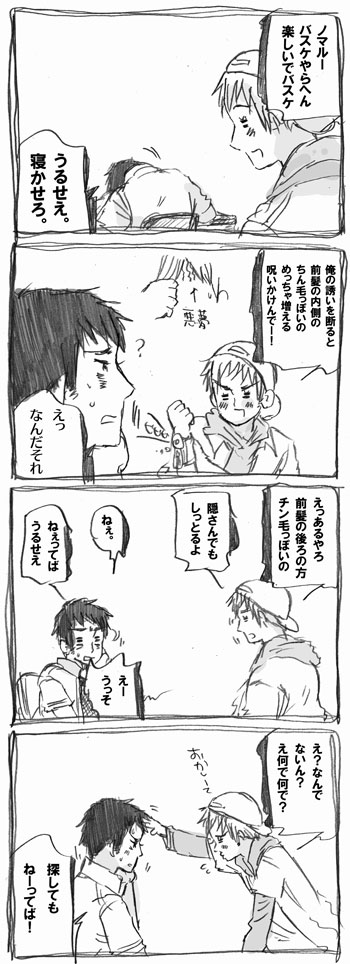 ノマルー
バスケやらへん
楽しいでバスケ
うるせえ。
寝かせろ。
俺の誘いを断ると
前髪の内側の
ちん毛っぽいの
めっちゃ増える
呪いかけんでー!
悪夢
?
えっ
なんだそれ
えっあるやろ
前髪の後ろの方
チン毛っぽいの
隠さんでも
しっとるよ
ねぇ。
ねぇってば
うるせえ
えー
うっそ
え?なんで
ないん?
え何で何で?
おかしいて
探しても
ねーってば!